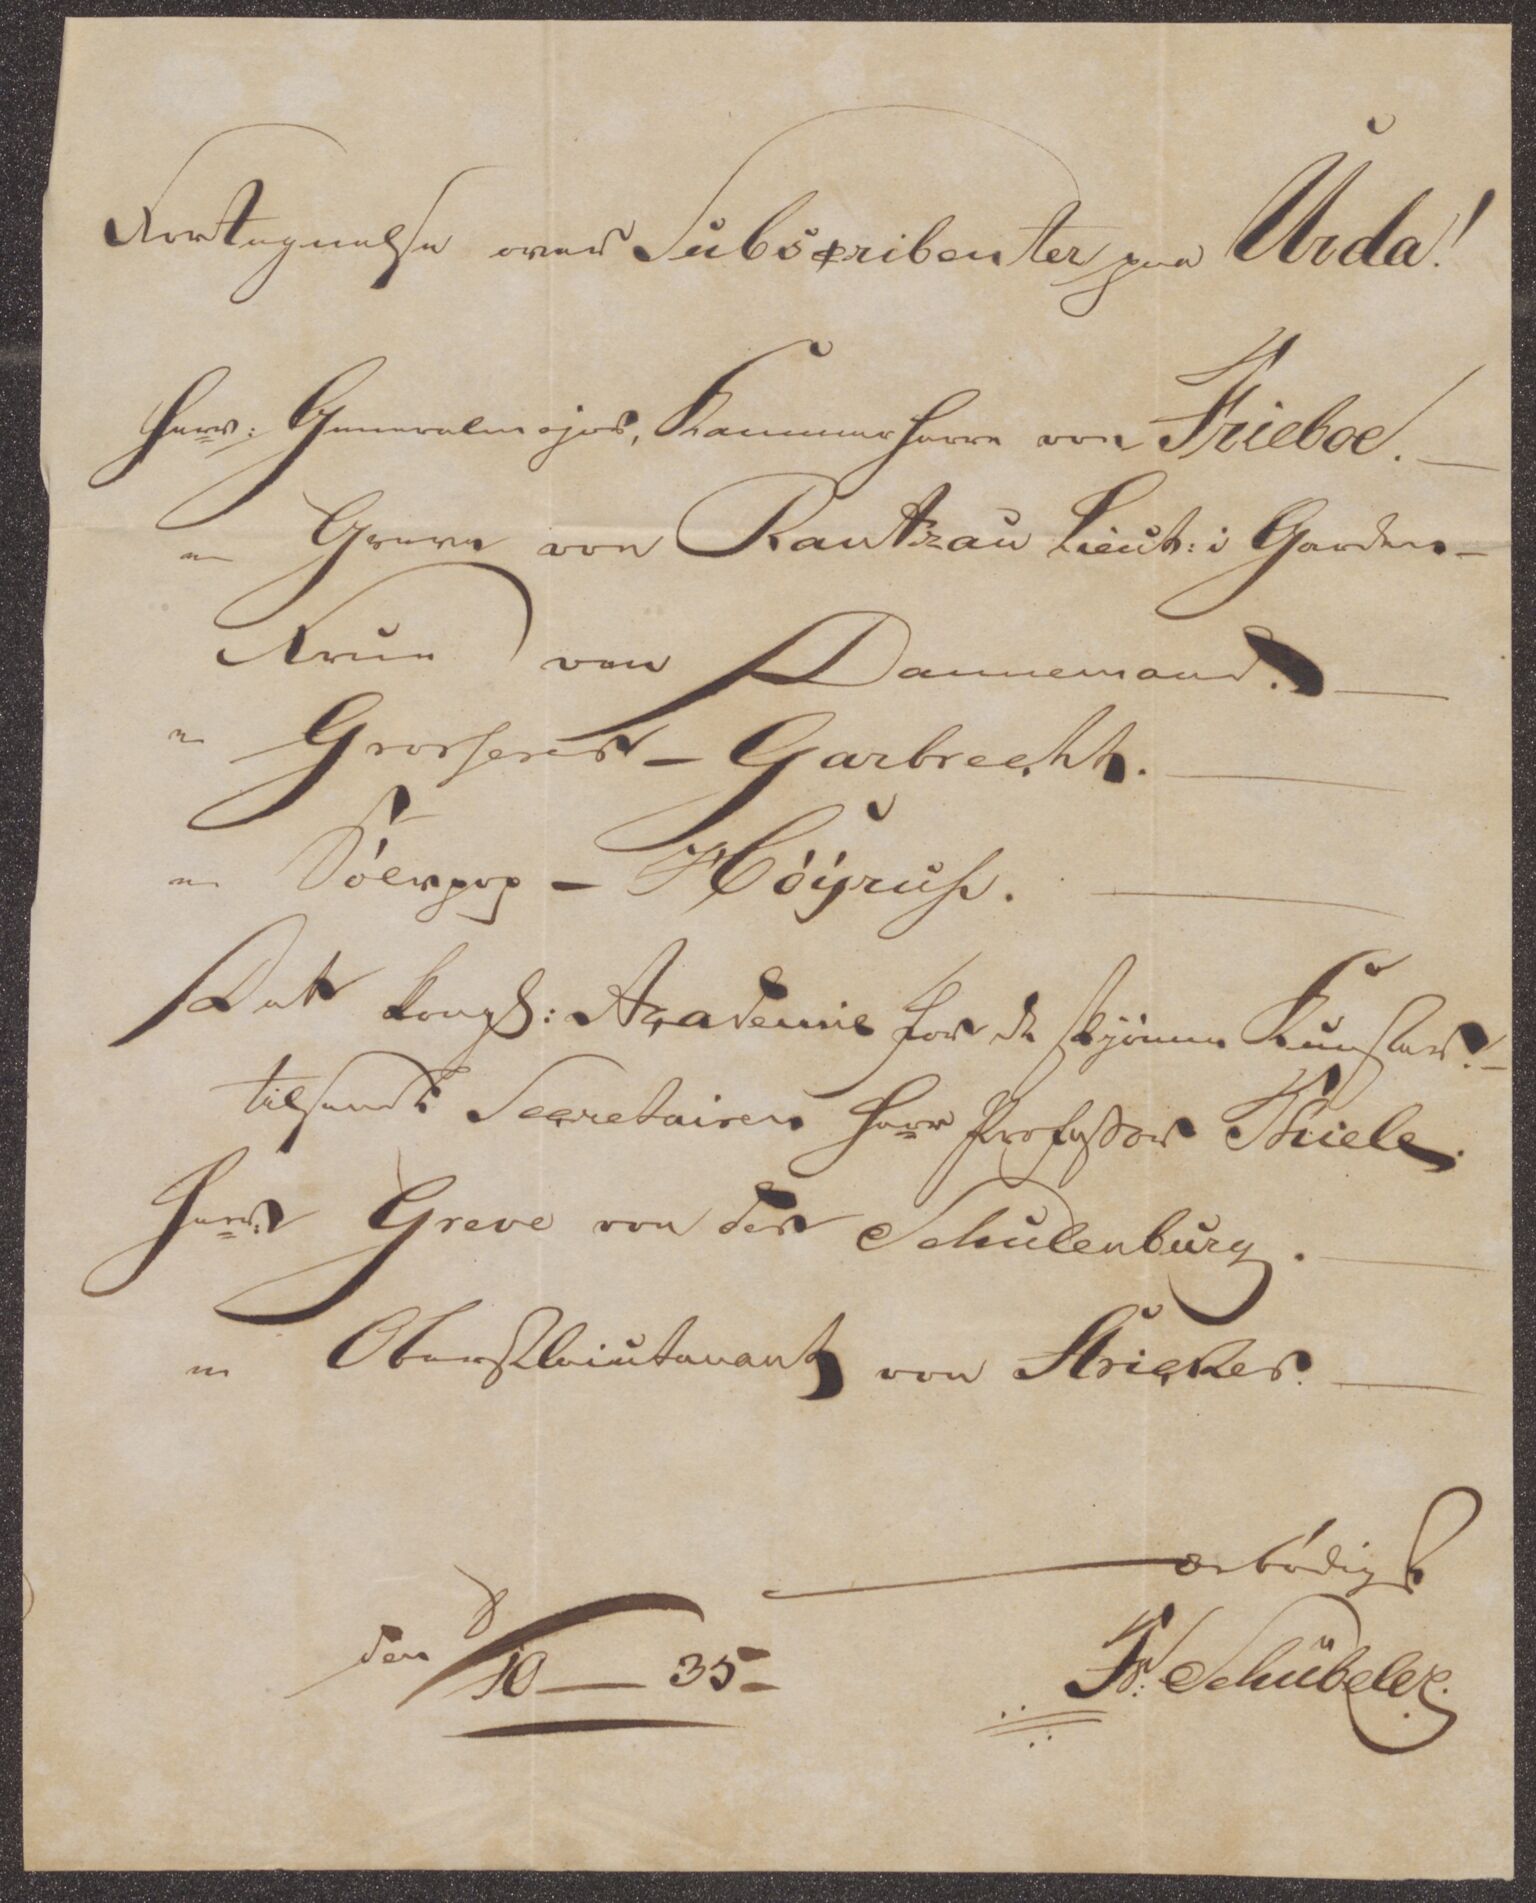 Fortegnelse over Subscribenter paa Urda!
Herr: Generalmajor, Kammerherre von Frieboe. —
" Greve von Rantzau Lieut: i Garden —
Frue von Dannemand. —
" Grosserer — Garbrecht. —
" — Höÿrup. —
Det kongl: Academie for de skjönne Kunster. —
tilsendt Secretairen Herr Professor Thiele.
Herr: Greve von der Schulenburg. —
" Oberstleiutenant von Stricker. —
— ærbödigst
den 8/10 — 35 —
Fr: Schübeler.